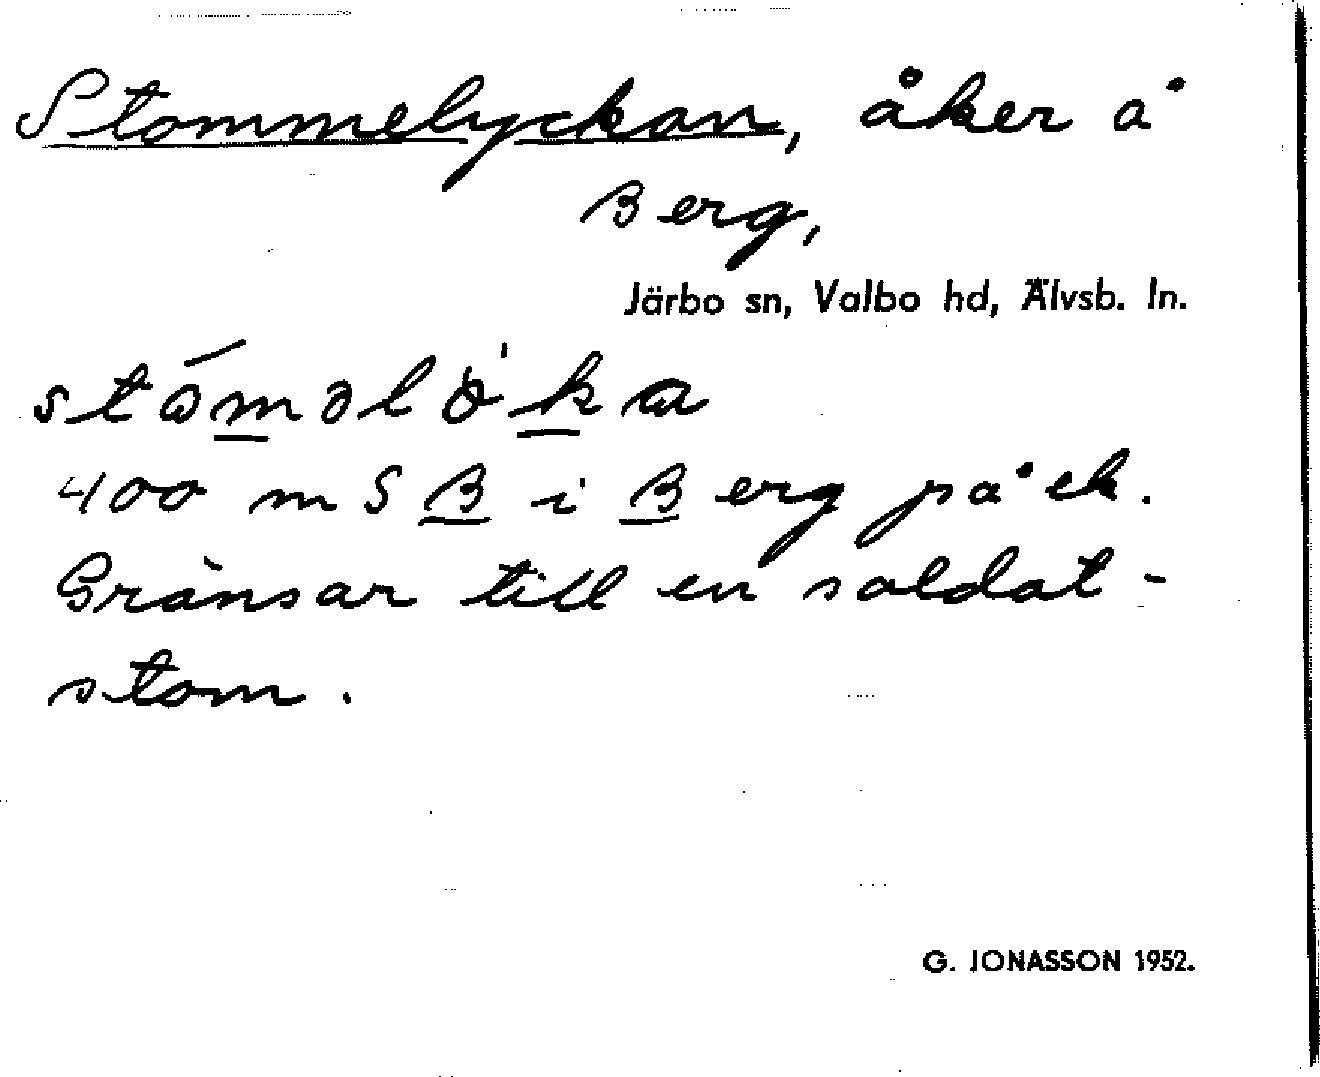 Stommelyckan, åker å
Berg,
Järbo sn, Valbo hd, Älvsb. ln.
400 m S B i Berg på ek.
Gränsar till en soldat-
stom.
G. JONASSON 1952.